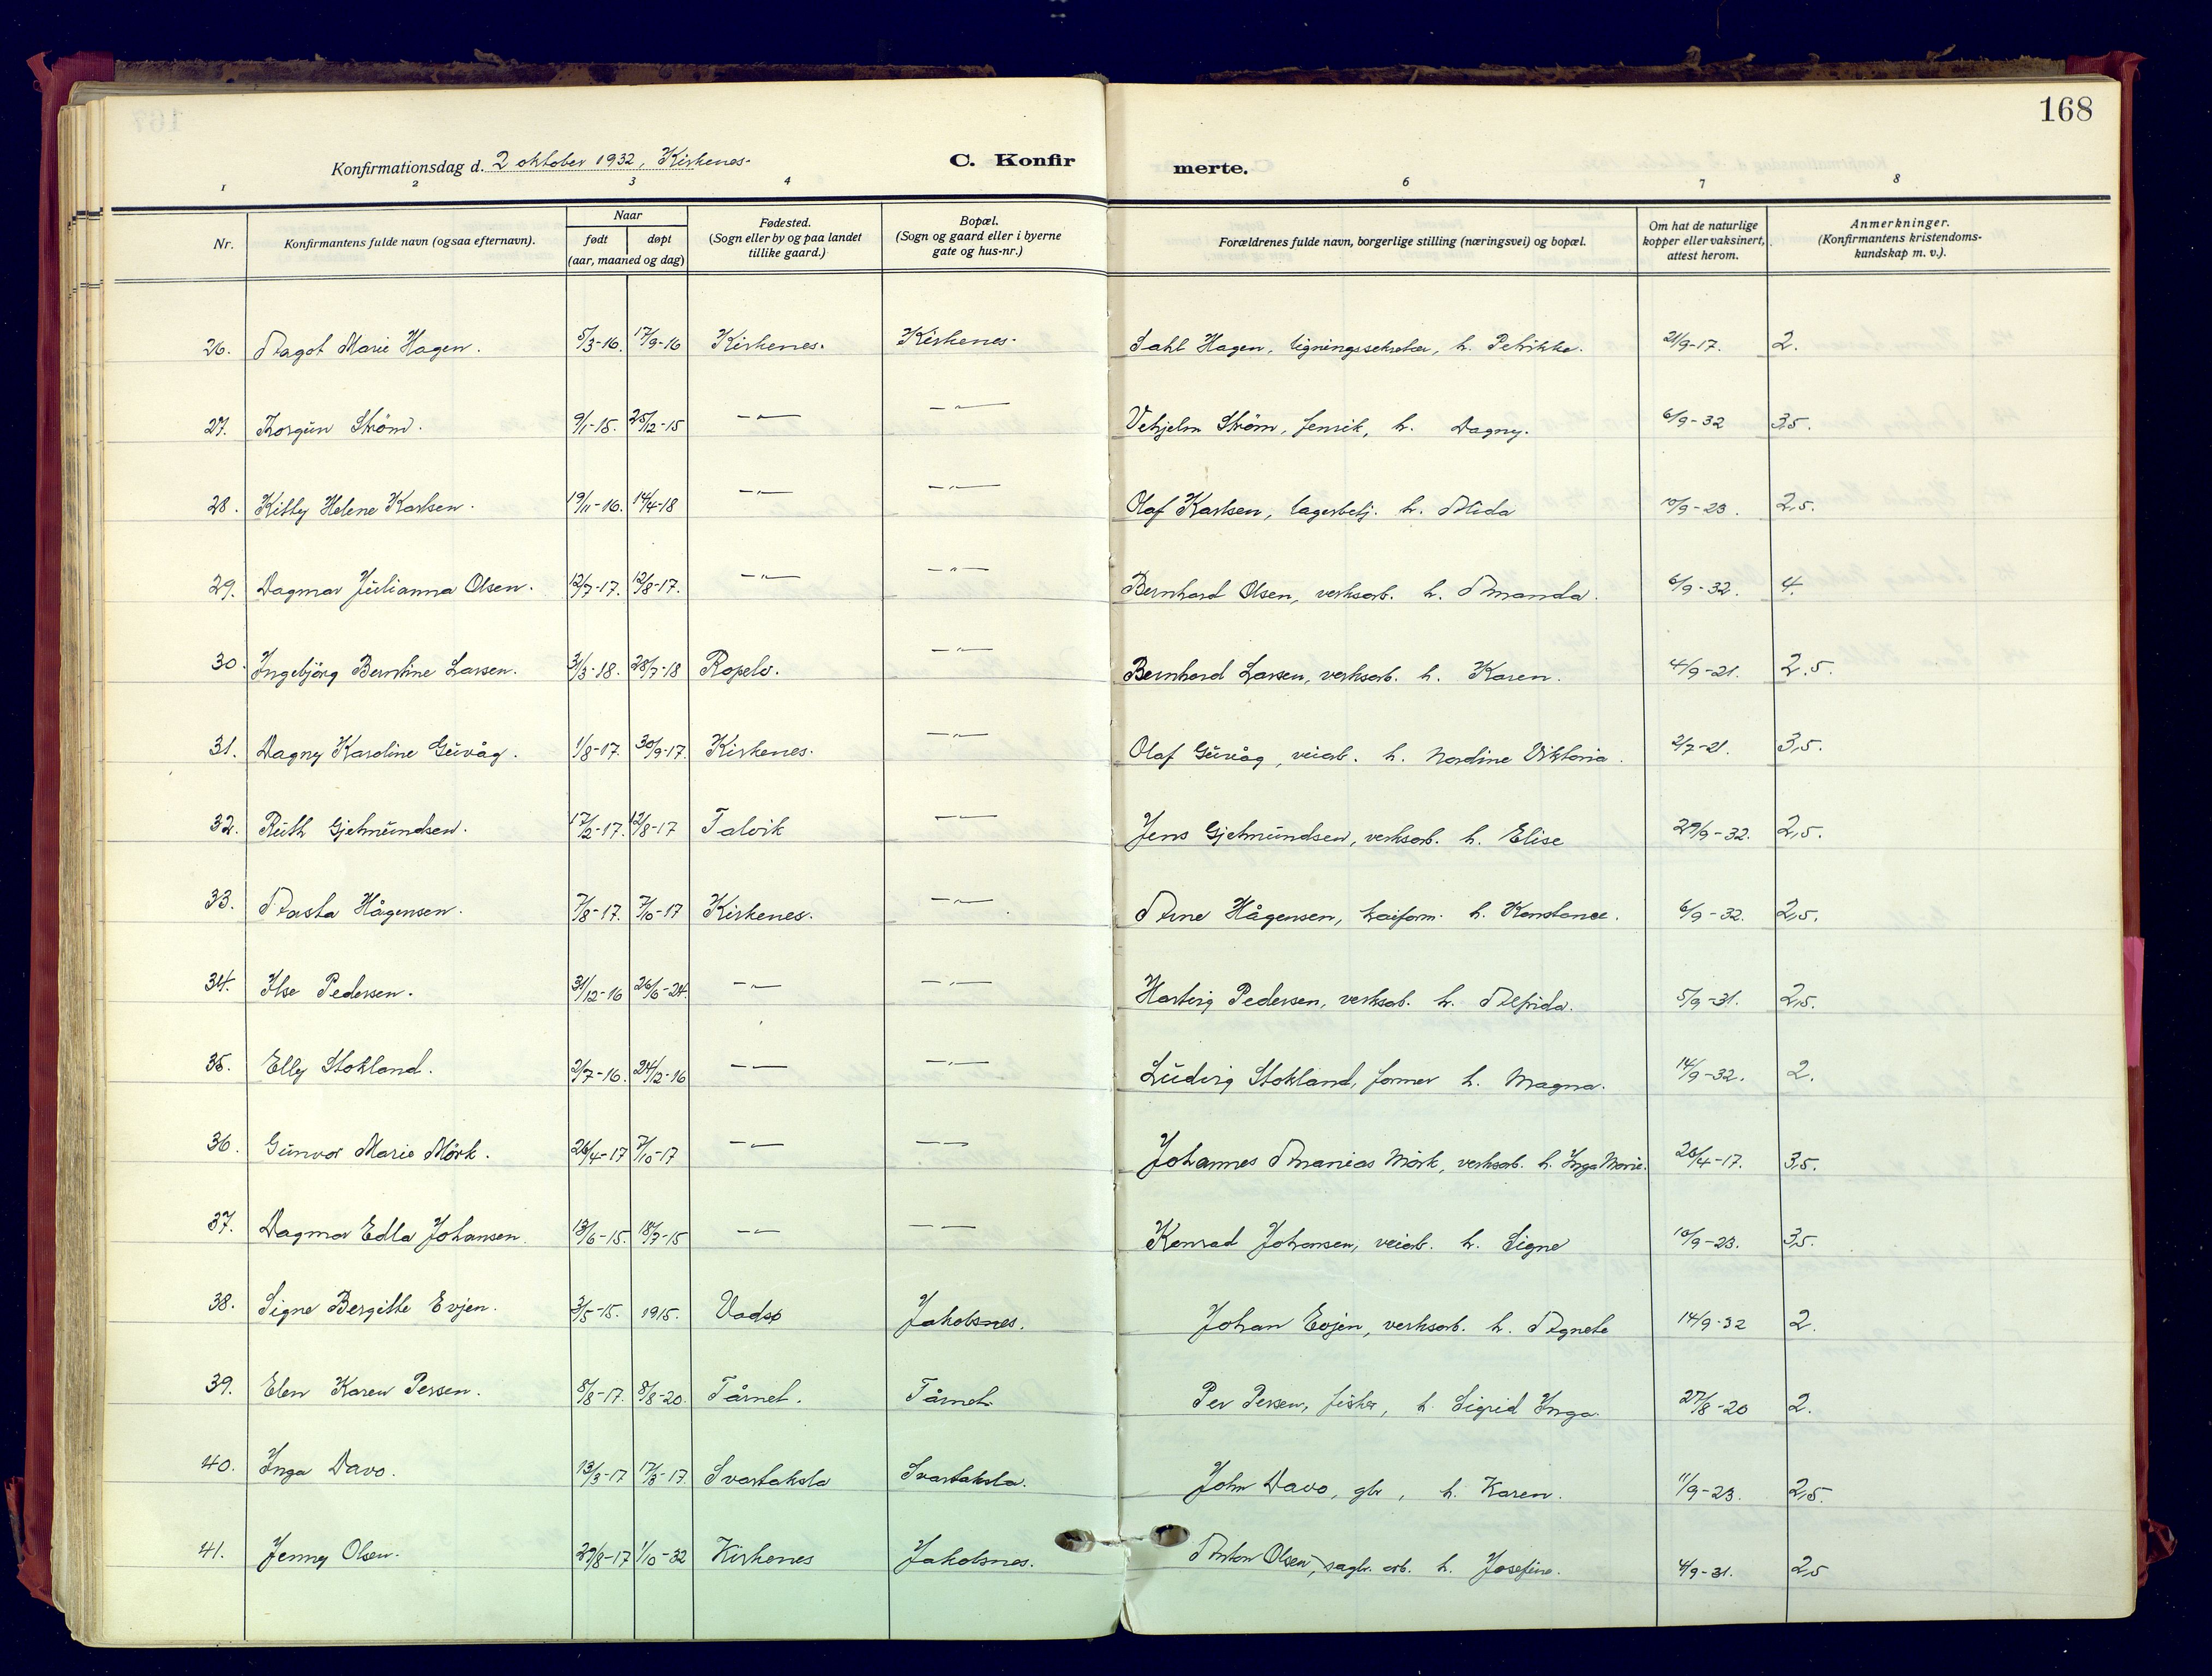 168
Konfirmationsdag d. 2 oktober 1932, Kirkenes.
C. Konfirmerte.
1 2 3 4 6 7 8
Nr. | Konfirmantens fulde navn (ogsaa efternavn). | Naar født døpt (aar, maaned og dag) | Fødested. (Sogn eller by og paa landet tillike gaard.) | Bopæl. (Sogn og gaard eller i byerne gate og hus-nr.) | Forældrenes fulde navn, borgerlige stilling (næringsvei) og bopæl. | Om hat de naturlige kopper eller vaksinert, attest herom. | Anmerkninger. (Konfirmantens kristendoms-kundskap m. v.).
26. Aagot Marie Hagen. 5/3-16. 17/9-16 Kirkenes. Kirkenes. Hagen, ligningssekretær, h. Petrikke. 21/9-17. 2.
27. Torgun Strøm. 9/1-15. 25/12-15 —"— —"— Strøm, h. Dagny. 6/9-32 3,5.
28. Kitty Helene Karlsen. 19/11-16. 14/4-18 —"— —"— Olaf Karlsen, lagerbetj. h. Alida 10/9-23. 2,5.
29. Dagmar Julianna Olsen. 12/7-17. 12/8-17. —"— —"— Bernhard Olsen, verksarb. h. Amanda. 6/9-32. 4.
30. Ingebjörg Berntine Larsen. 31/3-18. 28/7-18 Ropelv. —"— Bernhard Larsen, verksarb. h. Karen. 4/9-21. 2.5.
31. Dagny Karoline Guvåg. 1/8-17. 30/9-17. Kirkenes. —"— Olaf Guvåg, veiarb. h. Nordine Viktoria. 2/7-21. 3,5.
32. Ruth Gjetmundsen. 17/2-17. 12/8-17 Talvik —"— Jens Gjetmundsen, verksarb. h. Elise 29/9-32. 2,5.
33. Aasta Hågensen. 7/8-17. 7/10-17 Kirkenes. —"— Arne Hågensen, h. Konstance. 6/9-32. 2,5.
34. Ilse Pedersen. 31/12-16 26/6-24. —"— —"— Hartvig Pedersen, verksarb. h. Alfrida. 5/9-31. 2,5.
35. Elly Stokland. 2/7-16. 24/12-16 —"— —"— Ludvig Stokland, former h. Magna. 14/9-32. 2.
36. Gunvor Marie Mörk. 26/4-17 7/10-17 —"— —"— Johannes Ananias Mörk, verksarb. h. Inga Marie. 26/4-17. 3,5.
37. Dagmar Edla Johansen. 13/6-15. 18/7-15 —"— —"— Konrad Johansen, veiarb. h. Signe 10/9-23. 3,5.
38. Signe Bergitte Evjen. 3/5-15. 1915. Vadsø Jakobsnes. Johan Evjen, verksarb. h. Agnete 14/9-32 2.
39. Elen Karen Persen. 8/8-17. 8/8-20. Tårnet. Tårnet. Per Persen, fisker, h. Sigrid Inga. 27/8-20 2.
40. Inga Davo. 13/3-17 17/3-17. Svartaksla Svartaksla. John Davo, gbr, h. Karen. 11/9-23. 2,5.
41. Jenny Olsen. 29/8-17 1/10-32 Kirkenes Jakobsnes. Anton Olsen, sagbr. arb. h. Josefine. 4/9-31. 2,5